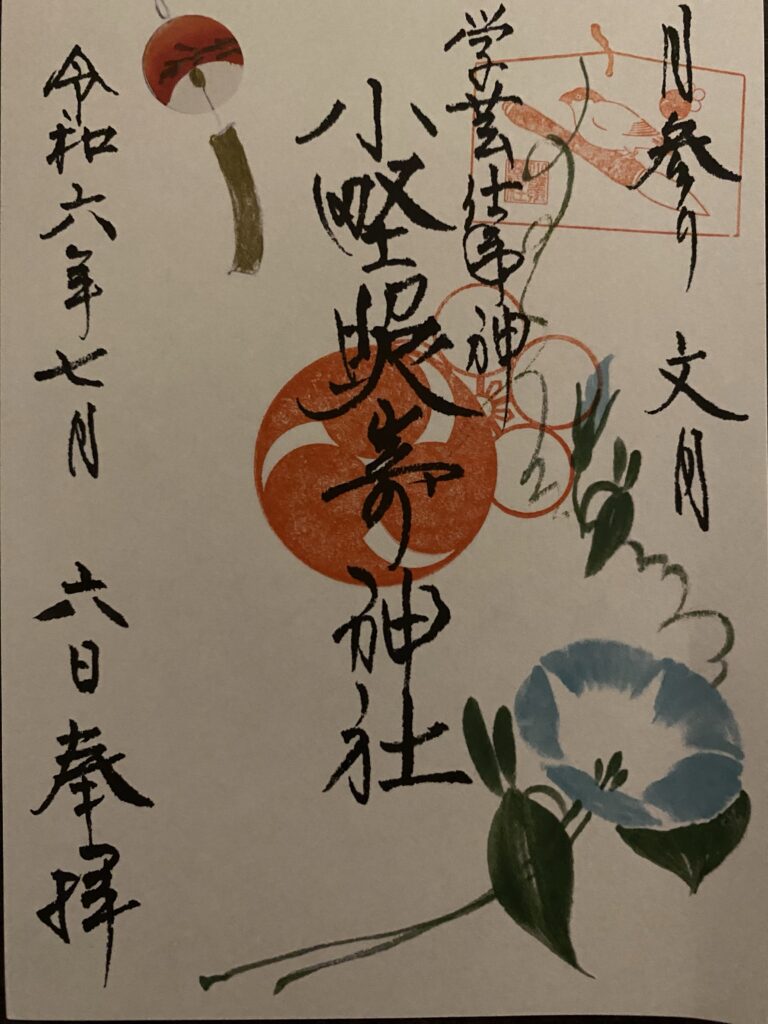 月参り 文月
学芸仕事神
小野照崎神社
令和六年七月 六日 奉拝